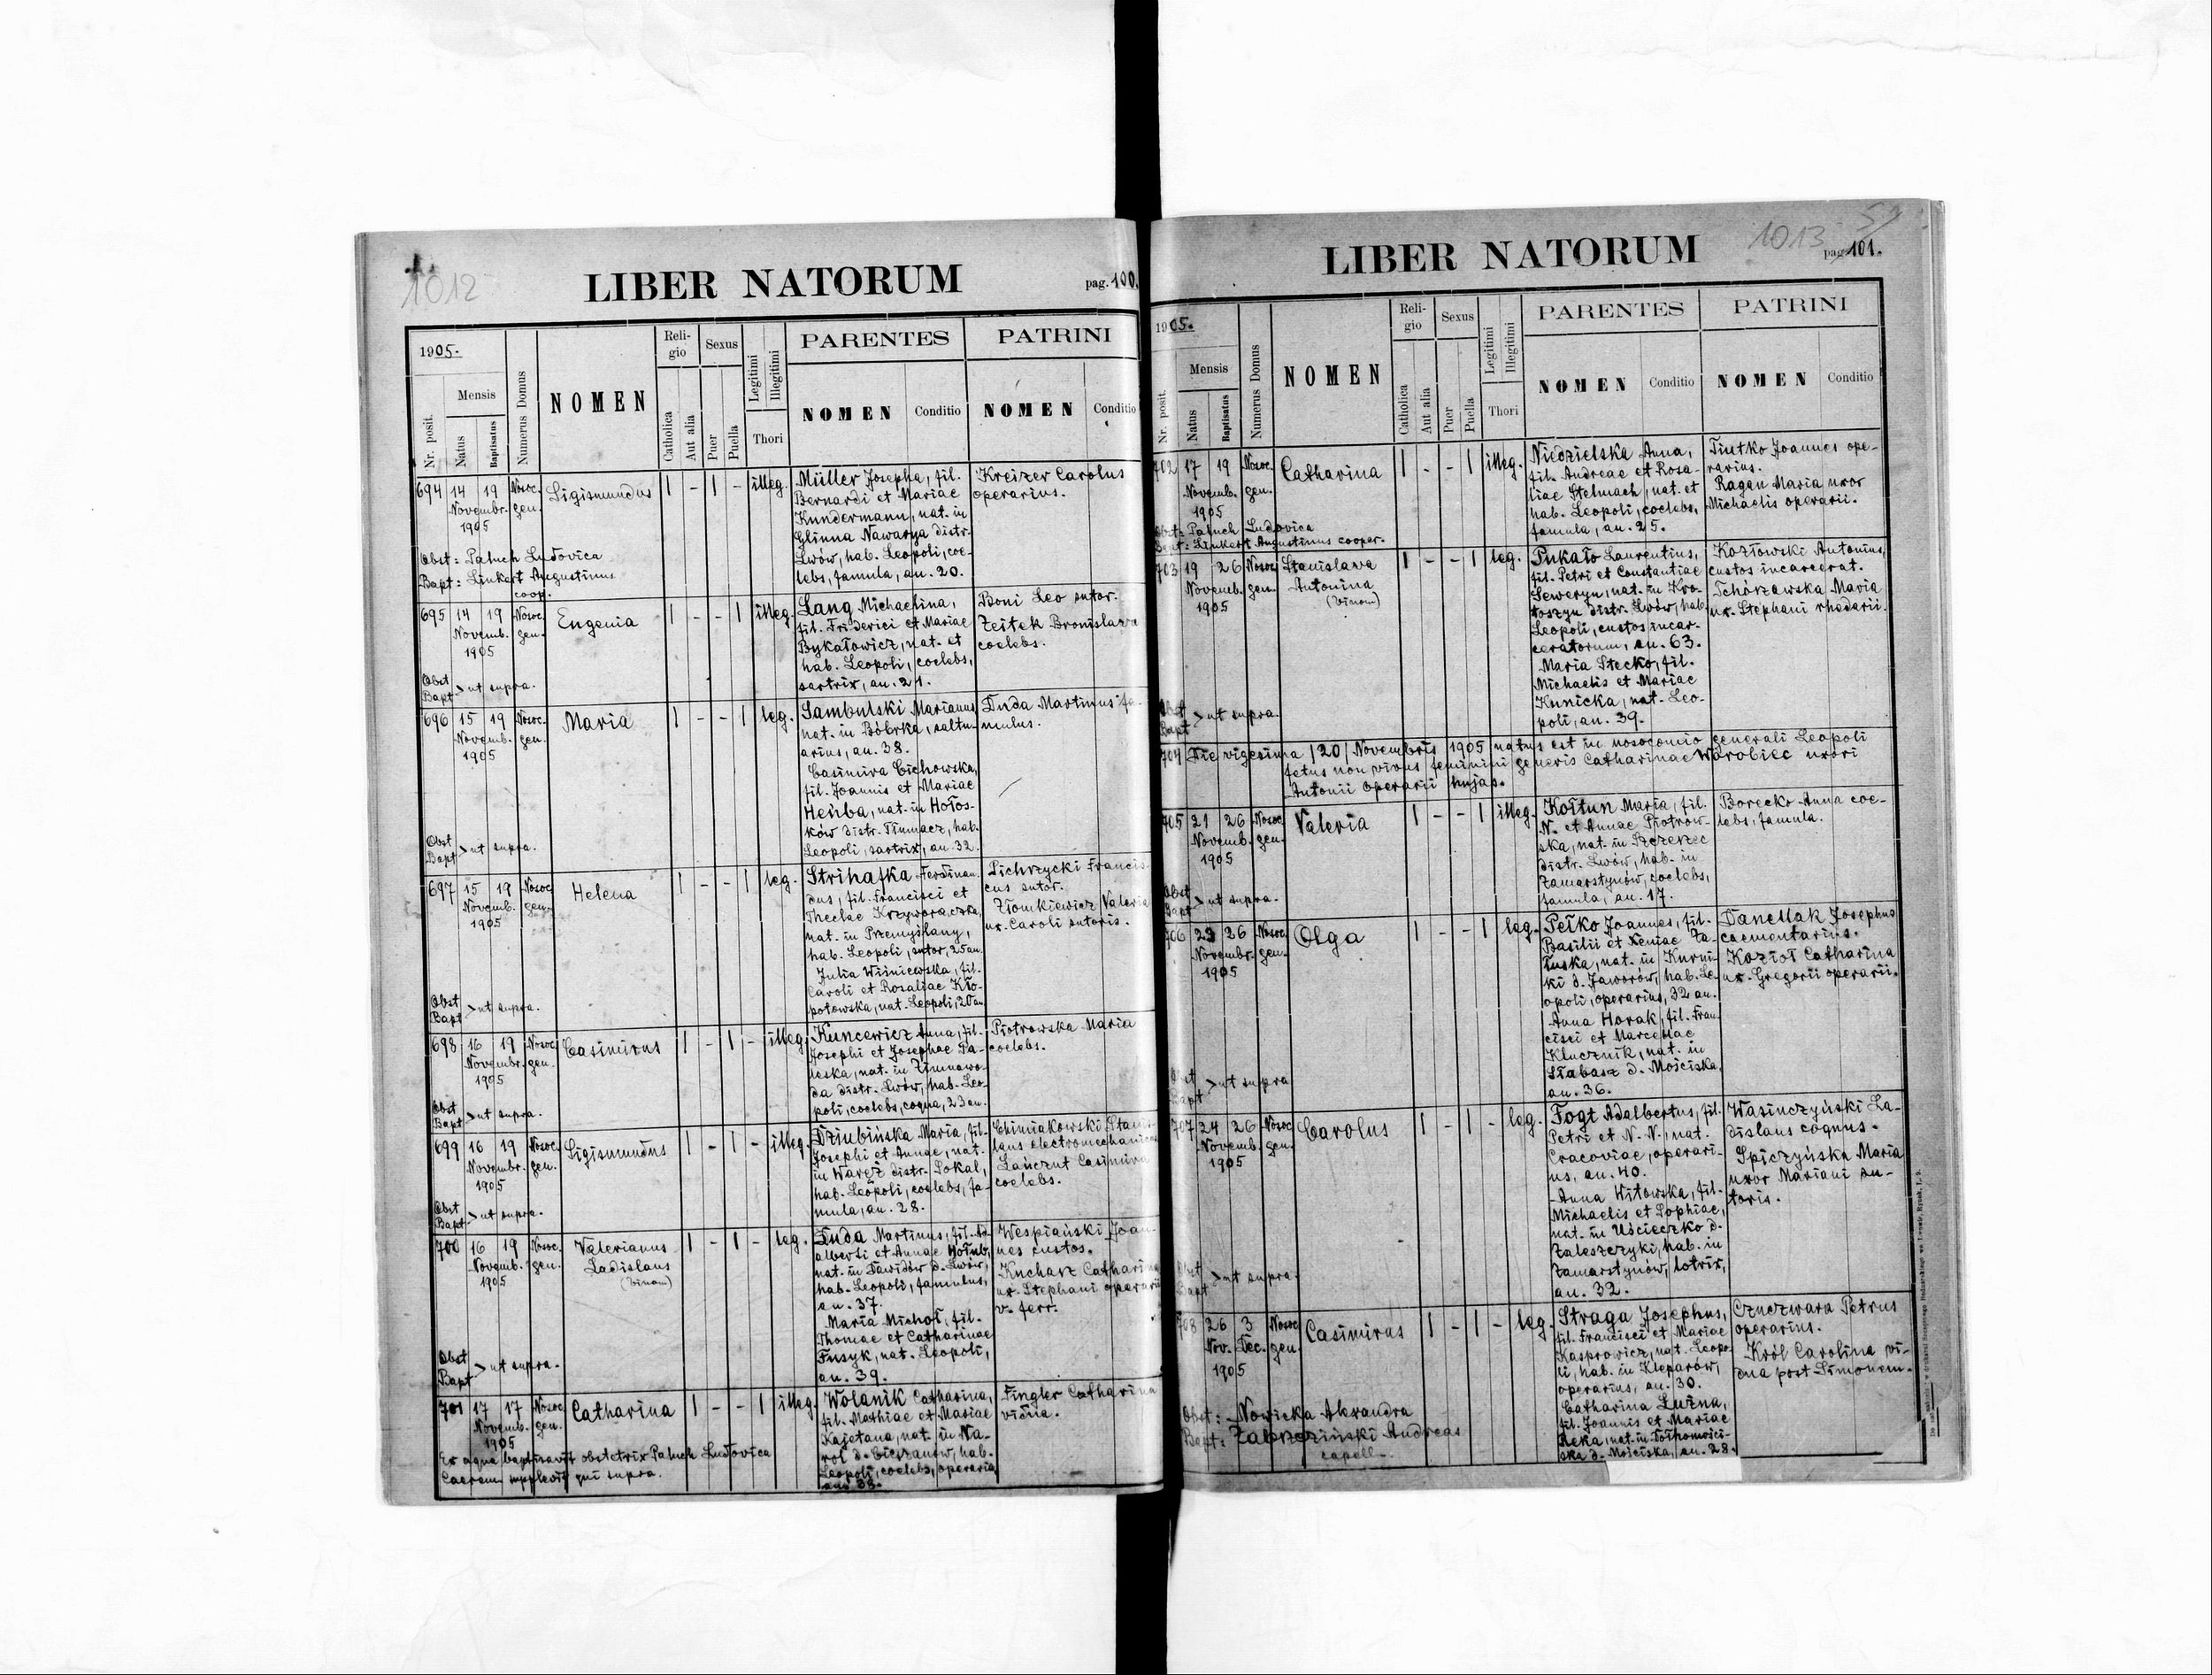 1012
LIBER NATORUM
pag. 100.
1905.
Nr. posit.
Mensis
Natus
Baptisatus
Numerus Domus
NOMEN
Reli-
gio
Catholica
Aut alia
Sexus
Puer
Puella
Legitimi
Illegitimi
Thori
PARENTES
NOMEN
Conditio
PATRINI
NOMEN
Conditio
694 14 19 Nosoc. Sigismundus 1 - 1 - illeg.
Novembr. gen.
1905
Müller Josepha, fil.
Bernardi et Mariae
Kundermann, nat. in
Glinna Nawarya distr.
Lwów, hab. Leopoli, coe-
lebs, famula, an. 20.
Kreizer Carolus
operarius.
Obst: Paluch Ludovica
Bapt: Linkert Augustinus
coop.
695 14 19 Nosoc. Eugenia 1 - - 1 illeg.
Novemb. gen.
1905
Lang Michaelina,
fil. Friderici et Mariae
Bykałowicz, nat. et
hab. Leopoli, coelebs,
sartrix, an. 21.
Boni Leo sutor.
Zeitek Bronislava
coelebs.
Obst
Bapt > ut supra.
696 15 19 Nosoc. Maria 1 - - 1 leg.
Novemb. gen.
1905
Sambulski Marianus
nat. in Bóbrka, saltu-
arius, an. 38.
Casimira Cichowska,
fil. Joannis et Mariae
Heńba, nat. in Hołos-
ków distr. Tłumacz, hab.
Leopoli, sartrix, an. 32.
Duda Martinus fa-
mulus.
Obst
Bapt > ut supra.
697 15 19 Nosoc. Helena 1 - - 1 leg.
Novemb. gen.
1905
Strihafka Ferdinan-
dus, fil. Francisci et
Theclae Krzyworączka,
nat. in Przemyślany,
hab. Leopoli, sutor, 25 an.
Julia Wiśniewska, fil.
Caroli et Rosaliae Kło-
potowska, nat. Leopoli, 20 an.
Pichrzycki Francis-
cus sutor.
Ziomkiewicz Valeria
ux. Caroli sutoris.
Obst
Bapt > ut supra.
698 16 19 Nosoc. Casimirus 1 - 1 - illeg.
Novembr. gen.
1905
Kuncewicz Anna, fil.
Josephi et Josephae Pa-
leska, nat. in Zimnawo-
da distr. Lwów, hab. Leo-
poli, coelebs, coqua, 23 an.
Piotrowska Maria
coelebs.
Obst
Bapt > ut supra.
699 16 19 Nosoc. Sigismundus 1 - 1 - illeg.
Novembr. gen.
1905
Dziubińska Maria, fil.
Josephi et Annae, nat.
in Waręż distr. Sokal,
hab. Leopoli, coelebs, fa-
mula, an. 28.
Chimiakowski Stanis-
laus electromechanicus
Łańczut Casimira
coelebs.
Obst
Bapt > ut supra.
700 16 19 Nosoc. Valerianus 1 - 1 - leg.
Novemb. gen. Ladislaus
1905 (binom)
Duda Martinus, fil. Ad-
alberti et Annae Hołub,
nat. in Dawidów d. Lwów,
hab. Leopoli, famulus,
an. 37.
Maria Michoł, fil.
Thomae et Catharinae
Fusyk, nat. Leopoli,
an. 39.
Wespiański Joan-
nes custos.
Kucharz Catharina
ux. Stephani operarii
v. ferr.
Obst
Bapt > ut supra.
701 17 17 Nosoc. Catharina 1 - - 1 illeg.
Novemb. gen.
1905
Wolanik Catharina,
fil. Mathiae et Mariae
Kajetana, nat. in Na-
rol d. Cieszanów, hab.
Leopoli, coelebs, operaria,
an. 38.
Fingler Catharina
vidua.
Ex aqua baptisavit obstetrix Paluch Ludovica
Caerem. supplevit qui supra.
1013
LIBER NATORUM
pag. 101.
1905.
Nr. posit.
Mensis
Natus
Baptisatus
Numerus Domus
NOMEN
Reli-
gio
Catholica
Aut alia
Sexus
Puer
Puella
Legitimi
Illegitimi
Thori
PARENTES
NOMEN
Conditio
PATRINI
NOMEN
Conditio
702 17 19 Nosoc. Catharina 1 - - 1 illeg.
Novemb. gen.
1905
Niedzielska Anna,
fil. Andreae et Rosa-
liae Stelmach, nat. et
hab. Leopoli, coelebs,
famula, an. 25.
Tiutko Joannes ope-
rarius.
Ragan Maria uxor
Michaelis operarii.
Obst: Paluch Ludovica
Bapt: Linkert Augustinus cooper.
703 19 26 Nosoc. Stanislava 1 - - 1 leg.
Novemb. gen. Antonina
1905 (binom)
Pukało Laurentius,
fil. Petri et Constantiae
Seweryn, nat. in Kro-
toszyn distr. Lwów, hab.
Leopoli, custos incar-
ceratorum, an. 63.
Maria Stecko, fil.
Michaelis et Mariae
Kunicka, nat. Leo-
poli, an. 39.
Kozłowski Antonius,
custos incarcerat.
Tchórzawska Maria
ux. Stephani rhedarii.
Obst
Bapt > ut supra.
704 Die vigesima /20/ Novembris 1905 natus est in nosocomio generali Leopoli
fetus non vivus feminini generis Catharinae Worobiec uxori
Antonii operarii hujas.
705 21 26 Nosoc. Valeria 1 - - 1 illeg.
Novemb. gen.
1905
Kołtun Maria, fil.
N. et Annae Piotrow-
ska, nat. in Szczerzec
distr. Lwów, hab. in
Zamarstynów, coelebs,
famula, an. 17.
Borecko Anna coe-
lebs, famula.
Obst
Bapt > ut supra.
706 23 26 Nosoc. Olga 1 - - 1 leg.
Novembr. gen.
1905
Pełko Joannes, fil.
Basilii et Xeniae Za-
łuska, nat. in Kurni-
ki d. Jaworów, hab. Le-
opoli, operarius, 32 an.
Anna Horak, fil. Fran-
cisci et Marcellae
Klucznik, nat. in
Słabasz d. Mościska,
an. 36.
Danellak Josephus
caementarius.
Kozioł Catharina
ux. Gregorii operarii.
Obst
Bapt > ut supra
707 24 26 Nosoc. Carolus 1 - 1 - leg.
Novemb. gen.
1905
Fogt Adalbertus, fil.
Petri et N. N., nat.
Cracoviae, operari-
us, an. 40.
Anna Witowska, fil.
Michaelis et Sophiae,
nat. in Uścieczko d.
Zaleszczyki, hab. in
Zamarstynów, lotrix,
an. 32.
Wasinczyński La-
dislaus coquus.
Spiczyńska Maria
uxor Mariani su-
toris.
Obst
Bapt > ut supra.
708 26 3 Nosoc. Casimirus 1 - 1 - leg.
Nov. Dec. gen.
1905
Straga Josephus,
fil. Francisci et Mariae
Kasprowicz, nat. Leopo-
li, hab. in Kleparów,
operarius, an. 30.
Catharina Luźna,
fil. Joannis et Mariae
Reka, nat. in
ska d. Mościska, an. 28.
Czuczwara Petrus
operarius.
Król Carolina vi-
dua post Simonem.
Obst: Nowicka Alexandra
Bapt: Andreas
capell.